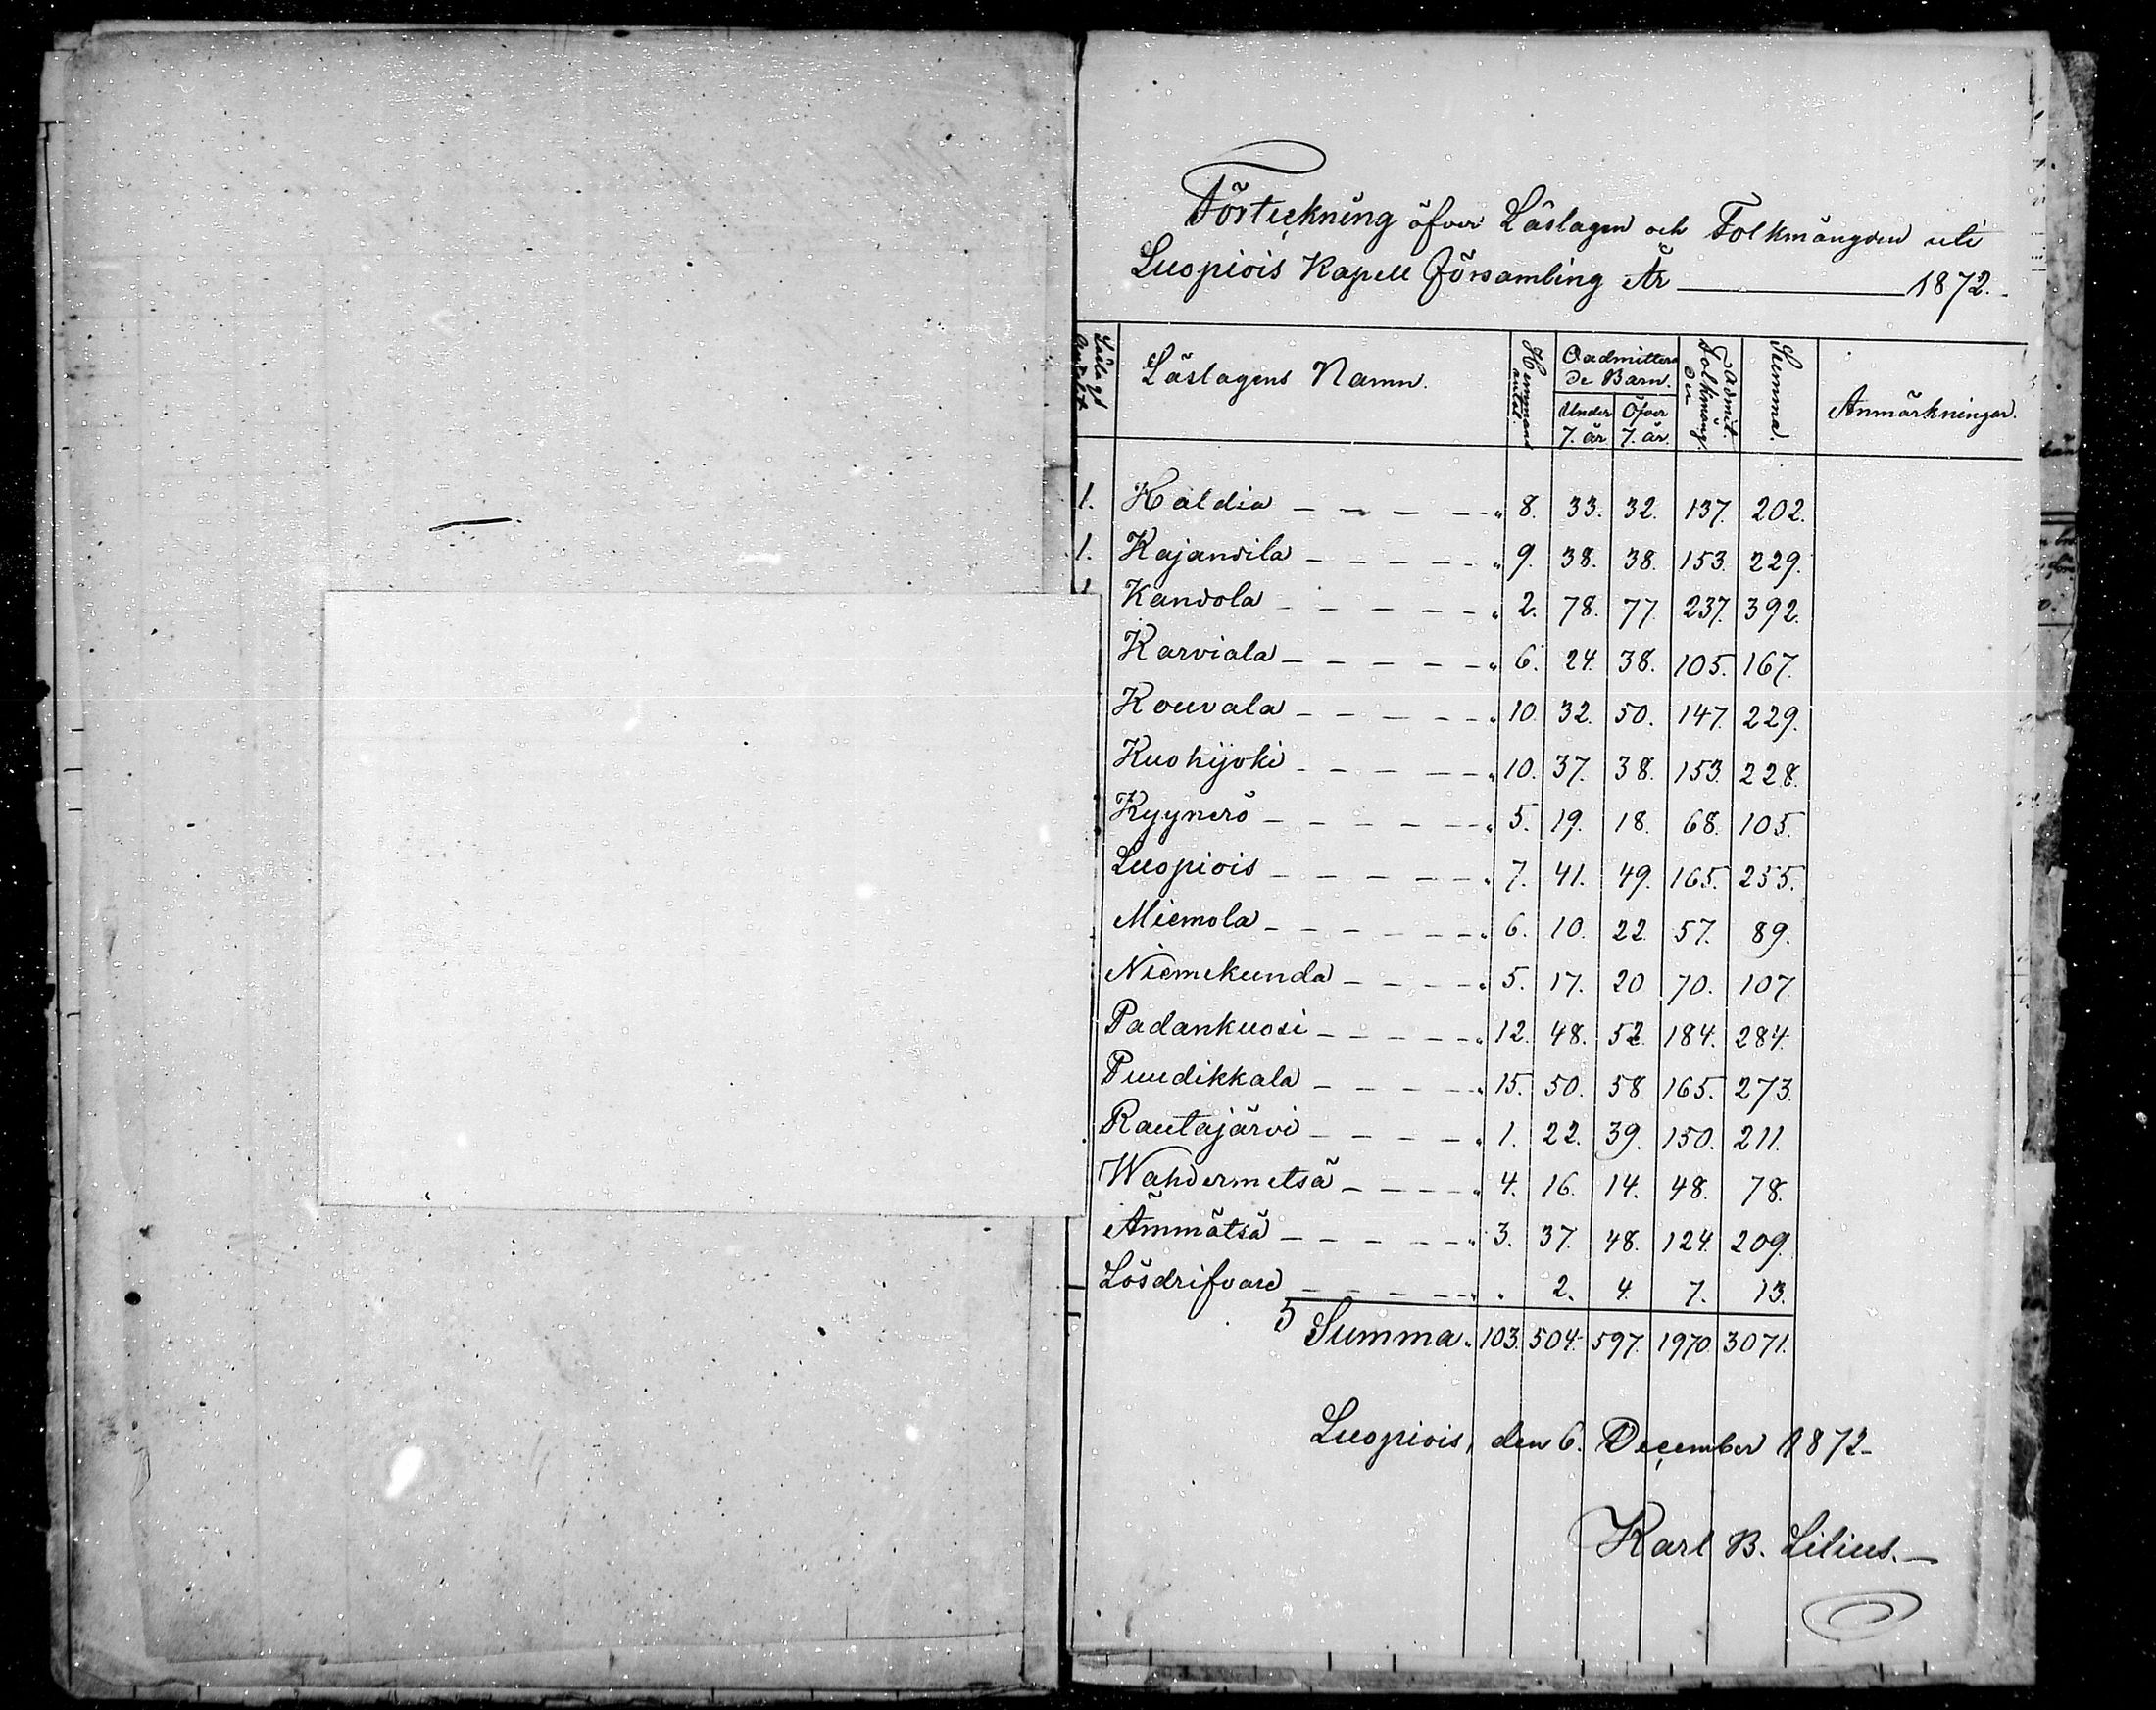 Förteckning öfver Läslagen och Folkmängden uti
Luopiois Kapell församling År 1872.
Läslags Antalet
Läslagens Namn.
Hemmans antal.
Oadmittera
de Barn.
Under 7. år
Öfver 7. år.
Admit. Folkmäng den
Summa.
Anmärkningar.
1. Haldia 8. 33. 32. 137. 202.
1. Kajandila 9. 38. 38. 153. 229.
Kandola 2. 78. 77. 237. 392.
Karviala 6. 24. 38. 105. 167.
Kouvala 10. 32. 50. 147. 229.
Kuohijoki 10. 37. 38. 153. 228.
Kyynerö 5. 19. 18. 68. 105.
Luopiois 7. 41. 49. 165. 255.
Miemola 6. 10. 22. 57. 89.
Niemikunda 5. 17. 20 70. 107.
Padankuosi 12. 48. 52. 184. 284.
Puudikkala 15. 50. 58 165. 273.
Rautajärvi 1. 22. 39. 150. 211.
Wahdermetsä 4. 16. 14. 48. 78.
Ämmätsä 3. 37. 48. 124. 209.
Lösdrifvare 2. 4. 7. 13.
5 Summa 103. 504. 597. 1970. 3071.
Luopiois, den 6. December 1872.
Karl B. Lilius.